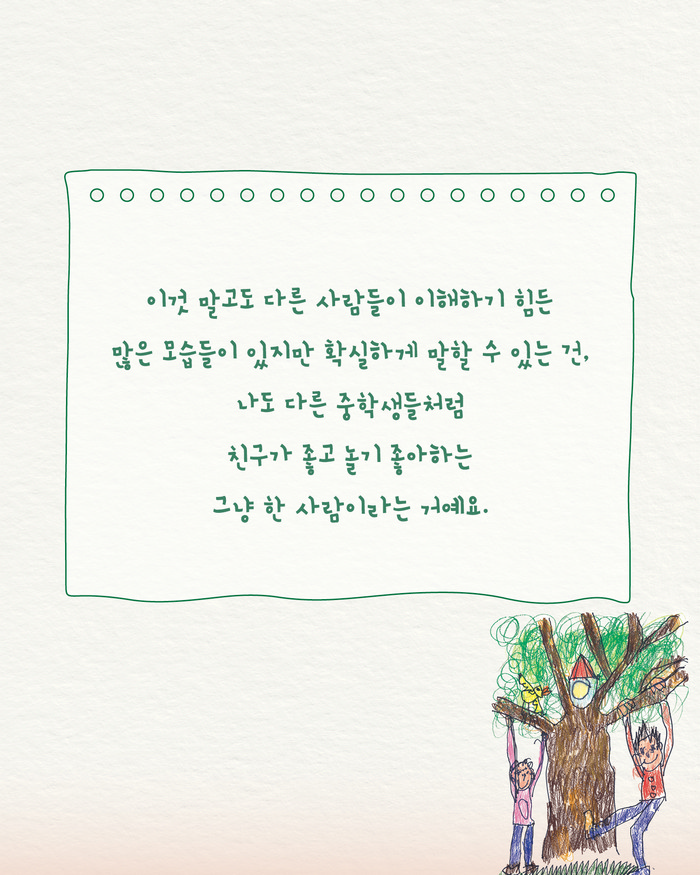 이것 말고도 다른 사람들이 이해하기 힘든
많은 모습들이 있지만 확실하게 말할 수 있는 건,
나도 다른 중학생들처럼
친구가 좋고 놀기 좋아하는
그냥 한 사람이라는 거예요.